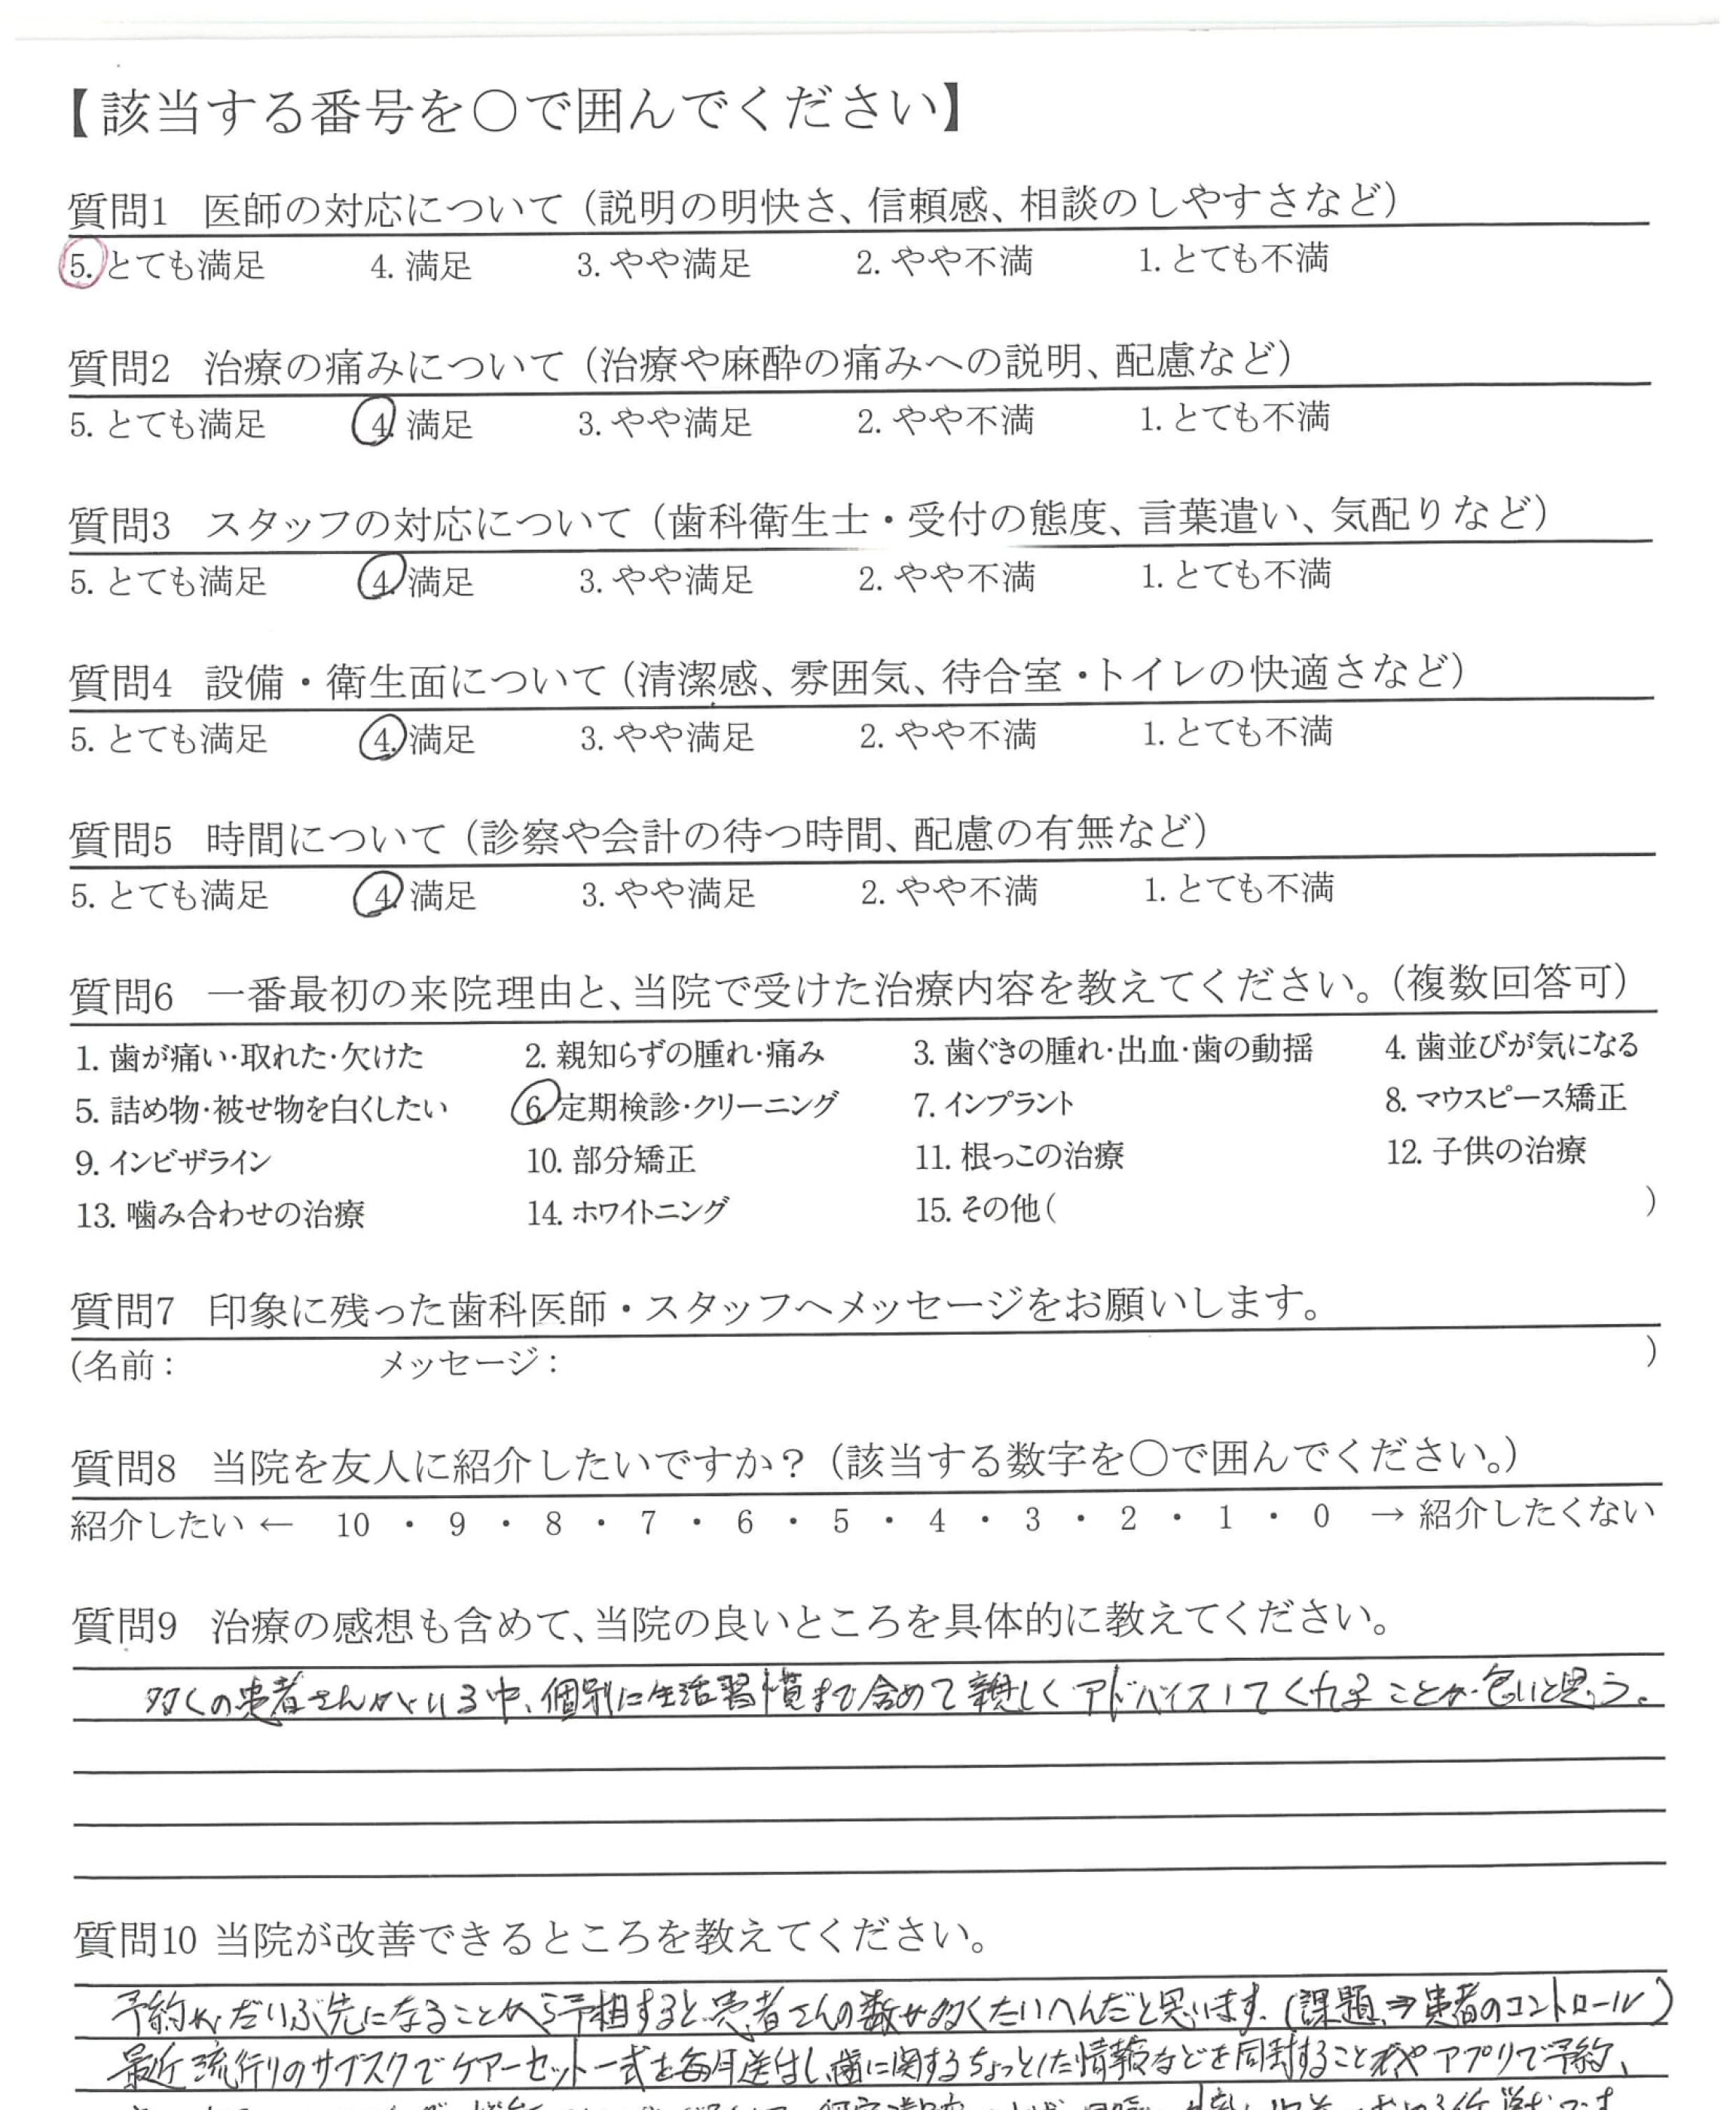 【該当する番号を○で囲んでください】
質問1 医師の対応について（説明の明快さ、信頼感、相談のしやすさなど）
5. とても満足 4. 満足 3. やや満足 2. やや不満 1. とても不満
質問2 治療の痛みについて（治療や麻酔の痛みへの説明、配慮など）
5. とても満足 4. 満足 3. やや満足 2. やや不満 1. とても不満
質問3 スタッフの対応について（歯科衛生士・受付の態度、言葉遣い、気配りなど）
5. とても満足 4. 満足 3. やや満足 2. やや不満 1. とても不満
質問4 設備・衛生面について（清潔感、雰囲気、待合室・トイレの快適さなど）
5. とても満足 4. 満足 3. やや満足 2. やや不満 1. とても不満
質問5 時間について（診察や会計の待つ時間、配慮の有無など）
5. とても満足 4. 満足 3. やや満足 2. やや不満 1. とても不満
質問6 一番最初の来院理由と、当院で受けた治療内容を教えてください。（複数回答可）
1. 歯が痛い・取れた・欠けた 2. 親知らずの腫れ・痛み 3. 歯ぐきの腫れ・出血・歯の動揺 4. 歯並びが気になる
5. 詰め物・被せ物を白くしたい 6. 定期検診・クリーニング 7. インプラント 8. マウスピース矯正
9. インビザライン 10. 部分矯正 11. 根っこの治療 12. 子供の治療
13. 噛み合わせの治療 14. ホワイトニング 15. その他( )
質問7 印象に残った歯科医師・スタッフへメッセージをお願いします。
(名前： メッセージ： )
質問8 当院を友人に紹介したいですか？（該当する数字を○で囲んでください。）
紹介したい ← 10 ・ 9 ・ 8 ・ 7 ・ 6 ・ 5 ・ 4 ・ 3 ・ 2 ・ 1 ・ 0 → 紹介したくない
質問9 治療の感想も含めて、当院の良いところを具体的に教えてください。
多くの患者さんがいる中、個別に生活習慣まで含めて親しくアドバイスしてくれることが良いと思う。
質問10 当院が改善できるところを教えてください。
予約がだいぶ先になることから予想すると患者さんの数が多くたいへんだと思います。(課題⇒患者のコントロール)
最近流行りのサブスクでケアーセット一式を毎月送付し、歯に関するちょっとした情報などを同封することやアプリで予約、